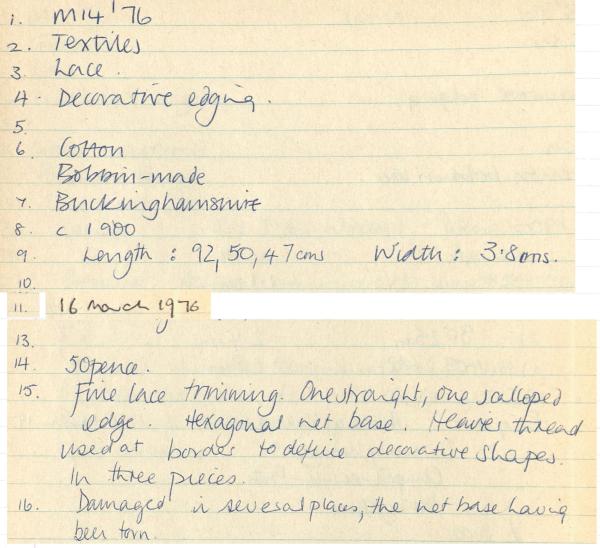 1. M14 '76
2. Textiles
3. Lace.
4. Decorative edging.
5.
6. Cotton
Bobbin-made
7. Buckinghamshire
8. c 1900
9. Length : 92, 50, 47cms Width : 3.8cms.
10.
11. 16 March 1976
13.
14. 50pence.
15. Fine lace trimming. One straight, one scalloped
edge. Hexagonal net base. Heavier thread
used at border to define decorative shapes.
In three pieces.
16. Damaged in several places, the net base having
been torn.